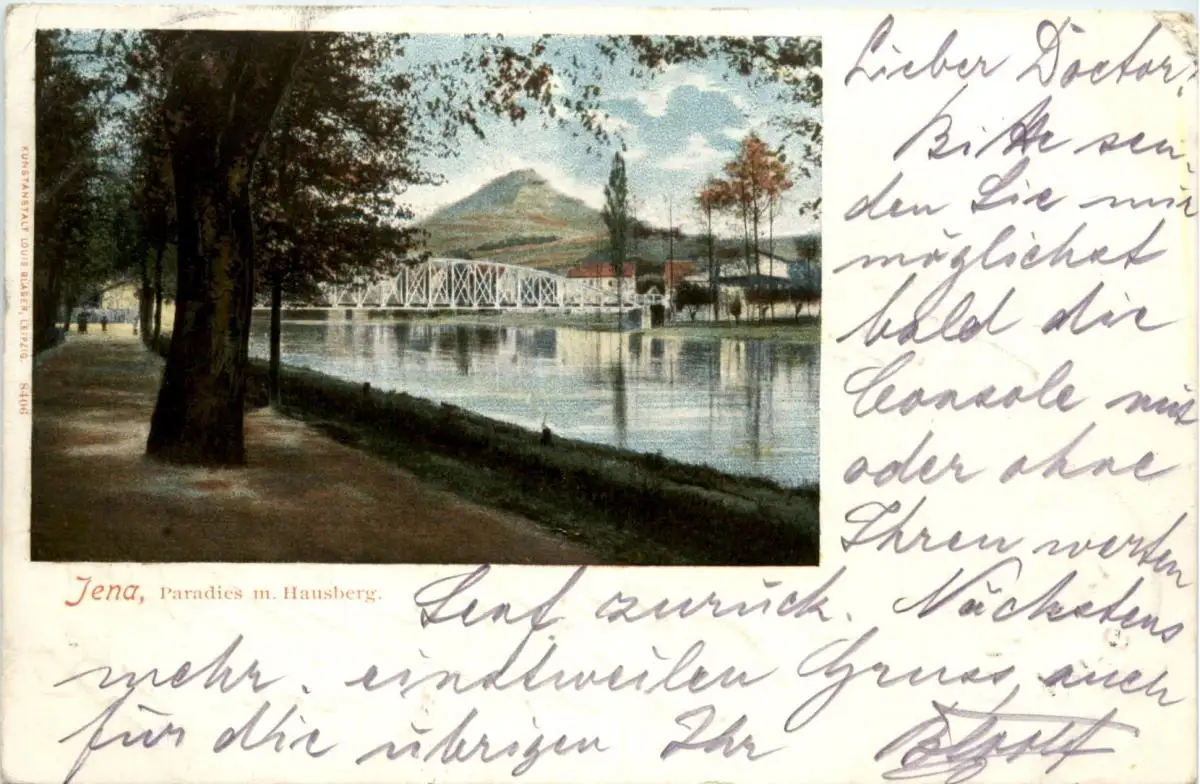 Lieber Doctor!
Bitte sen-
den Sie mir
möglichst
bald die
Console mit
oder ohne
Ihren werten
Senf zurück. Nächstens
mehr. einstweilen Gruss, auch
für die übrigen Ihr
Jena, Paradies m. Hausberg.
KUNSTANSTALT LOUIS GLASER, LEIPZIG. 8406